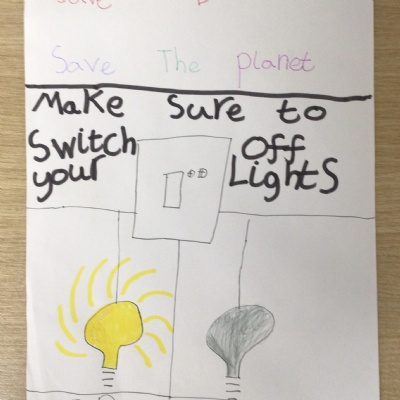 Save The planet
Make Sure to
Switch Off
your Lights